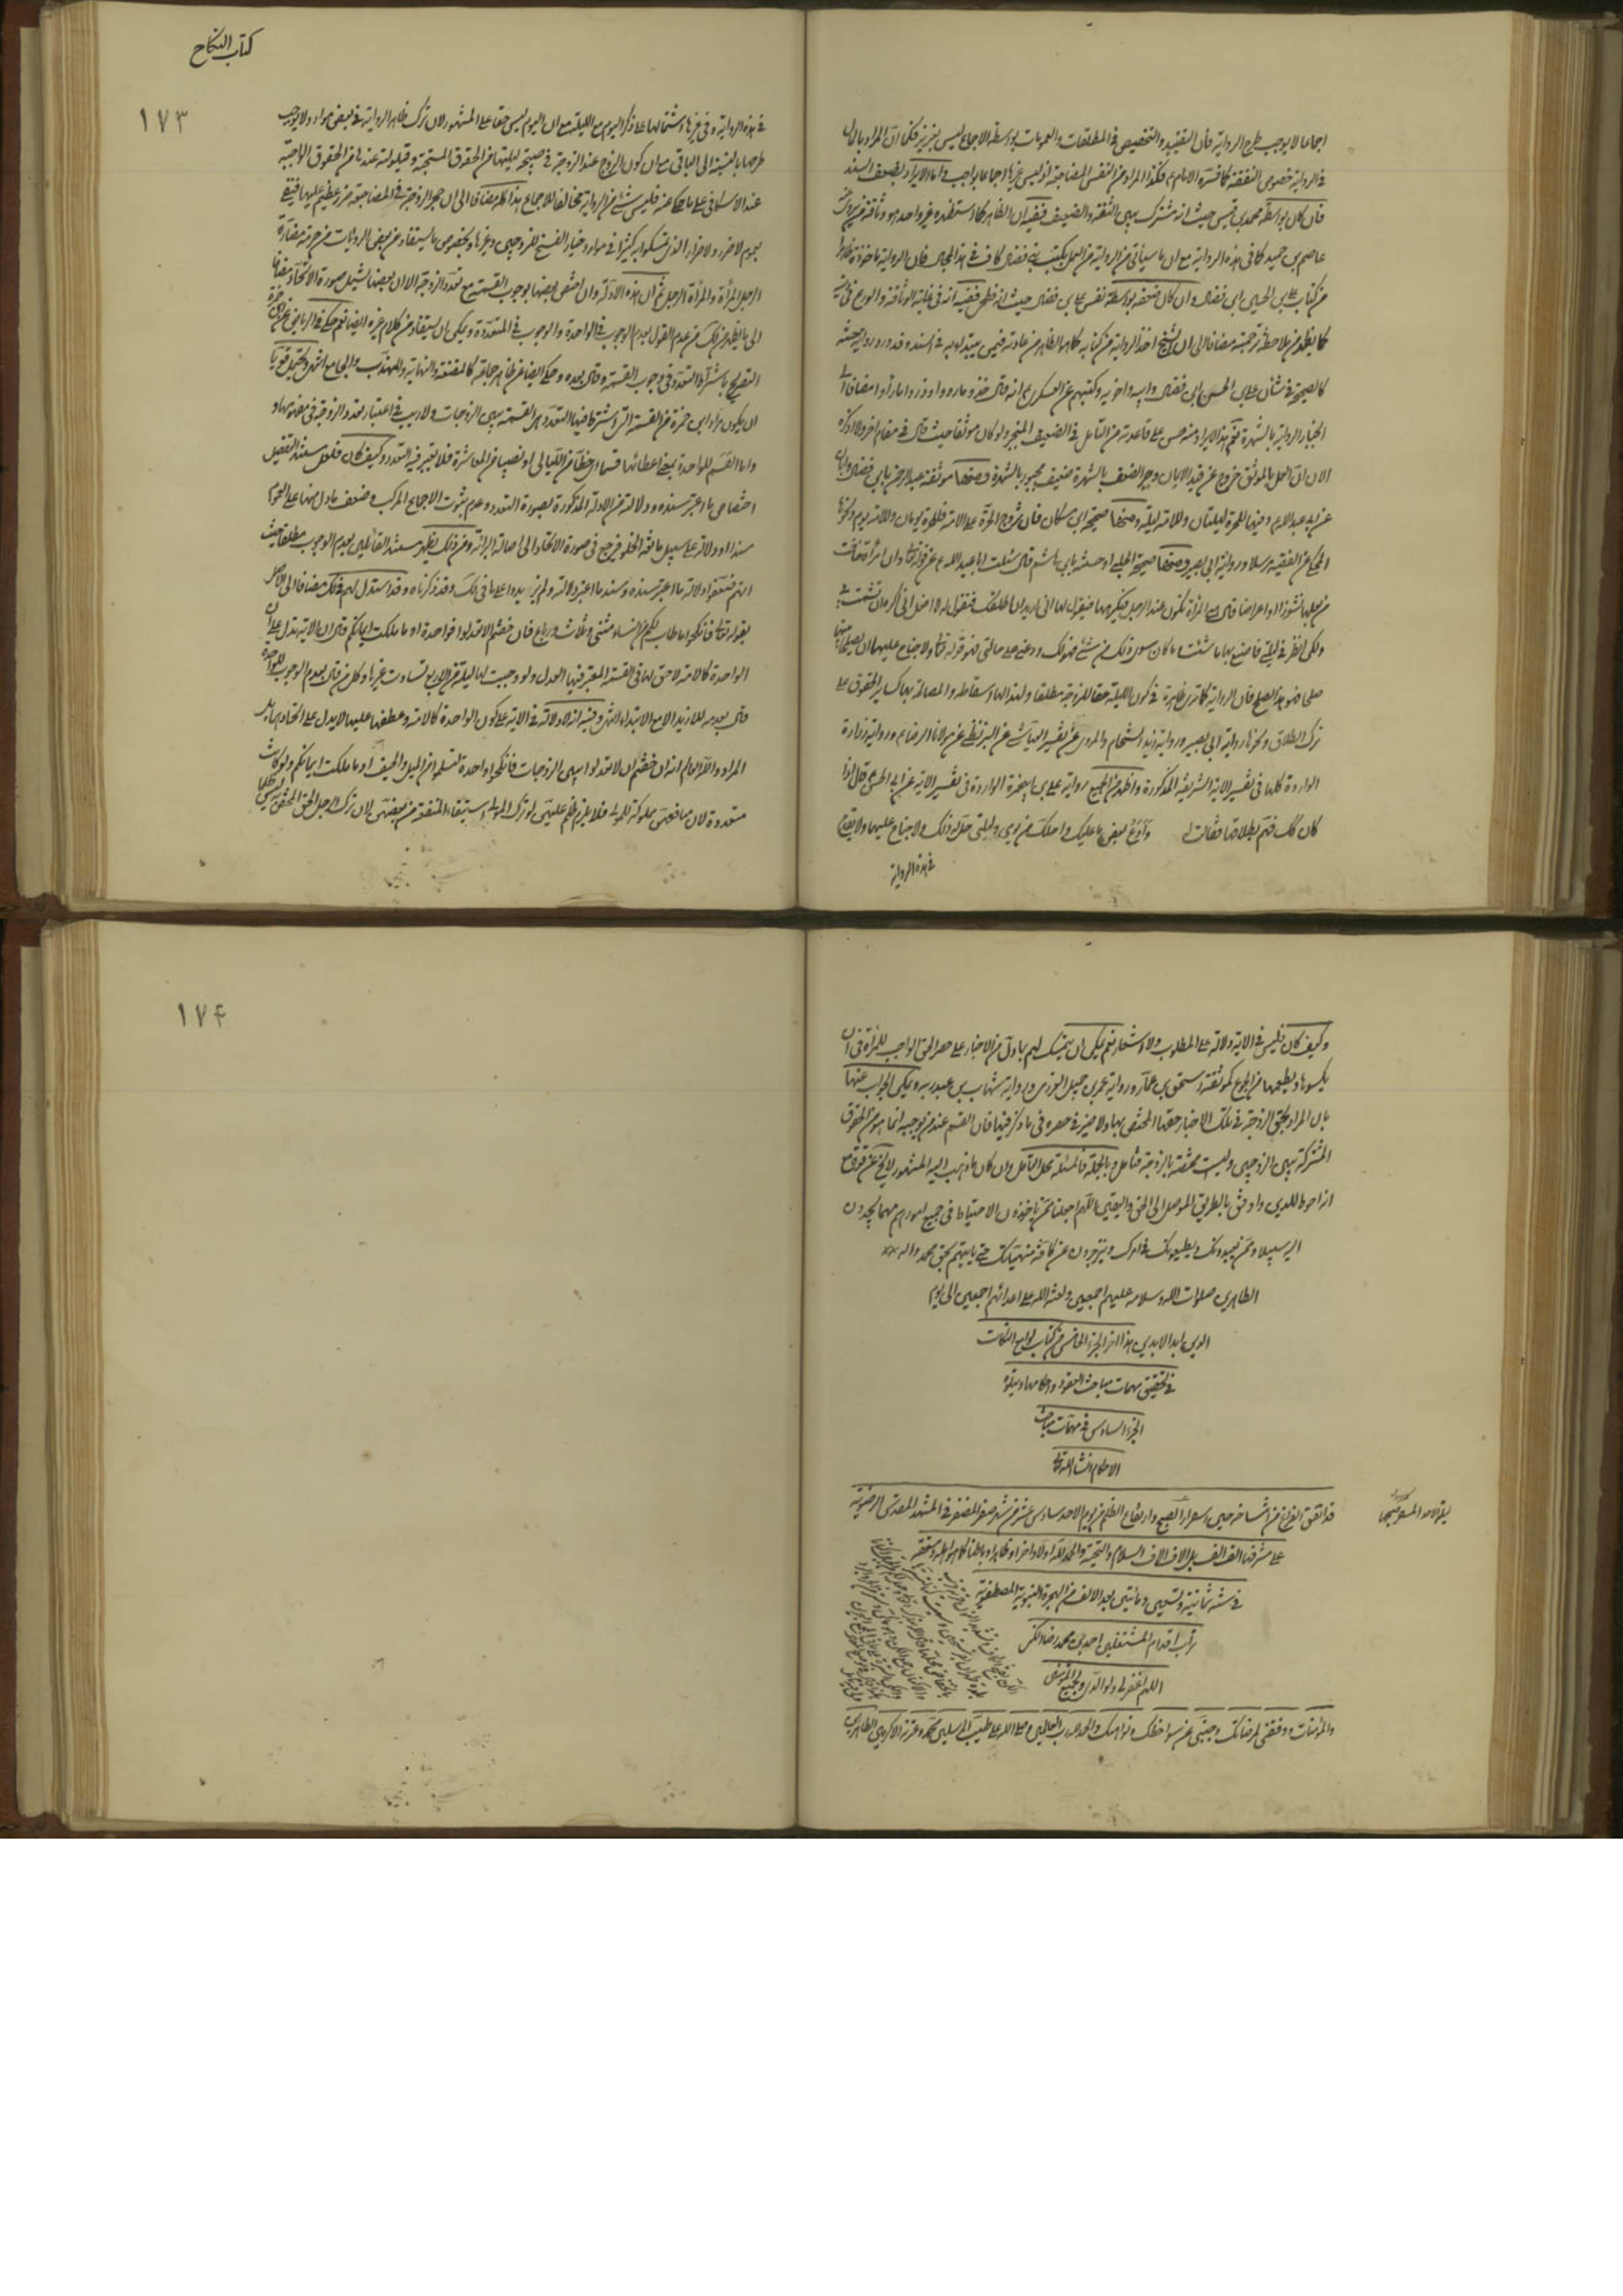 اجماعا لا يوجب طرح الرواية فان التقييد والتخصيص في المطلقات والعمومات بواسطة الاجماع ليس بعزيز فكما ان المراد بالمال
في الرواية خصوص النفقة كما فسره الامام ع فكذا المراد من النفس المضاجعة اذ ليس غيرها اجماعا بواجب واما الايراد بضعف السند
فان كان بواسطة محمد بن قيس حيث انه مشترك بين الثقة والضعيف ففيه ان الظاهر كما استظهره غير واحد هو وثاقة من يروى عنه
عاصم بن حميد كما في هذه الرواية مع ان ما سيأتي من الرواية من العمل بكتب بني فضال كاف في هذا المجال فان الرواية ماخوذة ظاهرا
من كتاب علي بن الحسن بن فضال وان كان ضعفه بواسطة نفس علي بن فضال حيث انه فطحي ففيه انه في غاية الوثاقة والورع
كما يظهر من ملاحظة ترجمته مضافا الى ان الشيخ اخذ الرواية من كتابه كما هو الظاهر من عادته فيمن يبتدأ به في السند وقد ورد رواية حسنة
كالصحيحة في شأن علي بن الحسن بن فضال وابيه واخويه وكتبهم عن العسكري ع انه قال خذوا ما رووا وذروا ما رأوا مضافا الى
انجبار الرواية بالشهرة نعم هذا الايراد منه حسن على قاعدته من التأمل في الضعيف المنجبر ولو كان موثقا حيث قال في مقام اخر
الا ان العمل بالموثق خروج عن قيد الايمان وجبر الضعف بالشهرة ضعيف مجبور بالشهرة ومنها موثقة عبد الرحمن بن ابي عبد الله
عن ابي عبد الله ع وفيها للحرة ليلتان وللامة ليلة ومنها صحيحة ابن مسكان فان تزوج الحرة على الامة فللحرة يومان وللامة يوم ونحوها
المحكي عن الفقيه مرسلا ورواية ابي بصير ومنها صحيحة الحلبي او حسنته بابن هاشم قال سئلت ابا عبد الله ع عن قوله تعالى وان امرأة خافت
من بعلها نشوزا او اعراضا قال هي المرأة تكون عند الرجل فيكرهها فيقول لها اني اريد ان اطلقك فتقول له لا تفعل اني اكره ان تشمت بي
ولكن انظر في ليلتي فاصنع بها ما شئت وما كان سوى ذلك من شئ فهو لك ودعني على حالتي فهو قوله تعالى ولا جناح عليهما ان يصلحا بينهما
صلحا فهو هذا الصلح فان الرواية كما ترى ظاهرة في كون الليلة حقا للزوجة مطلقا ولهذا لها اسقاطه والمصالحة بها كساير الحقوق على
ترك الطلاق ونحوها رواية ابي بصير ورواية زيد الشحام والمروي عن تفسير العياشي عن البزنطي عن مولانا الرضا ع ورواية زرارة
الواردة كلها في تفسير الاية الشريفة المذكورة واظهر من الجميع رواية علي بن ابي حمزة الواردة في تفسير الاية عن ابي الحسن ع قال اذا
كان كك فهم بطلاقها فقالت له وادع بعض ما عليك واحللك من يومي وليلتي حل له ذلك ولا جناح عليهما
في هذه الرواية
كتاب النكاح
١٧٣
في هذه الرواية وفي غيرها اشتمالها على ذكر اليوم مع الليلة مع ان اليوم ليس حقا على المشهور لان ترك ظاهر الرواية في بعض موارد لا يوجب
طرحها بالنسبة الى الباقي مع ان كون الزوج عند الزوجة في صبيحة ليلتها من الحقوق المستحبة وقيلولته عندها من الحقوق الواجبة
عند الاسكافي على ما حكى عنه فليس شئ من الرواية مخالفا للاجماع هذا كله مضافا الى ان هجر الزوجة في المضاجعة ضرر عظيم عليها فينفى
بعموم لا ضرر ولا ضرار الذي تمسكوا به كثيرا في موارد خيار الفسخ للزوجين وغيرها وبخصوص ما يستفاد من بعض الروايات من حرمة مضارة
الرجل المرأة والمرأة الرجل ثم ان هذه الادلة وان اختص بعضها بوجوب القسمة مع تعدد الزوجة الا ان بعضها يشمل صورة الاتحاد مضافا
الى ما يظهر من ذلك من عدم القول بعدم الوجوب في الواحدة والوجوب في المتعددة ويمكن ان يستفاد من كلام غيره ايضا نعم حكى في الرياض عن ابن حمزة
التصريح باشتراط التعدد في وجوب القسمة وقال بعده وحكى ايضا عن ظاهر جماعة كالمقنعة والنهاية والمهذب والجامع انتهى ويحتمل قويا
ان يكون مراد ابن حمزة من القسمة التي اشترط فيها التعدد هي القسمة بين الزوجات ولا ريب في اعتبار تعدد الزوجة في مفهومها
واما القسم للواحدة بمعنى اعطائها قسما اي حظا من الليالي او نصيبا من المعاشرة فلا يعتبر فيه التعدد وكيف كان فلعل مستند التفصيل
اختصاص ما اعتبر سنده ودلالته من الادلة المذكورة بصورة التعدد وعدم ثبوت الاجماع المركب وضعف ما دل منها على العموم
سندا او دلالة على سبيل مانعة الخلو فيرجع في صورة الاتحاد الى اصالة البرائة ومن ذلك يظهر مستند القائلين بعدم الوجوب مطلقا حيث
انهم ضعفوا دلالة ما اعتبر سنده وسند ما اعتبر دلالته ولم يزيدوا على ما في المسالك وقد ذكرناه وقد استدل لهم في ذلك مضافا الى الاصل
بقوله تعالى فانكحوا ما طاب لكم من النساء مثنى وثلاث ورباع فان خفتم الا تعدلوا فواحدة او ما ملكت ايمانكم قال ان الاية تدل على ان
الواحدة كالامة لا حق لها في القسمة المعتبر فيها العدل ولو وجبت لها ليلة من الاربع لتساوت غيرها وكل من قال بعدم الوجوب للواحدة
قال بعدمه للازيد الا مع الابتداء انتهى وفيه انه لا دلالة في الاية على كون الواحدة كالامة وعطفها عليها لا يدل على اتحادهما بل
المراد والله العالم انه ان خفتم ان لا تعدلوا بين الزوجات فانكحوا واحدة لتسلموا من الميل والحيف او ما ملكت ايمانكم ولو كانت
متعددة لان منافعهن مملوكة للمولى فلا يلزم ظلم عليهن لو ترك المولى استيفاء المنفعة من بعضهن لان ترك الرجل الحق المختص به ليس ظلما
وكيف كان فليس في الاية دلالة على المطلوب ولا اشعار نعم يمكن ان يتمسك لهم بما دل من الاخبار على حصر الحق الواجب للمرأة في ان
يكسوها ويطعمها من الجوع كموثقة اسحق بن عمار ورواية عمرو بن جبير العزرمي ورواية شهاب بن عبد ربه ويمكن الجواب عنها
بان المراد بحق الزوجة في تلك الاخبار حقها المختص بها ولا ضير في حصره في ما ذكر فيها فان القسم عند من يوجبه انما هو من الحقوق
المشتركة بين الزوجين وليست مختصة بالزوجة فتامل وبالجملة فالمسئلة محل التامل وان كان ما ذهب اليه المشهور لا يخ عن قوة مع
انه احوط للدين واوفق بالطريق الموصل الى الحق واليقين اللهم اجعلنا ممن ياخذون الاحتياط في جميع امورهم مهما يجدون
اليه سبيلا وممن يعبدونك ويطيعونك في امرك وينزجرون عن كافة منهياتك حتى ياتيهم بحق محمد واله
الطاهرين صلوات الله وسلامه عليهم اجمعين ولعنة الله على اعدائهم اجمعين الى يوم
الدين ابد الابدين هذا اخر الجزء الخامس من كتاب لوامع النكات
في تحقيق مهمات مباحث العقود واحكامها ويتلوه
الجزء السادس في مهمات مباحث
الاحكام انشاء الله تعالى
قد اتفق الفراغ من استنساخه حين اسفرار الصبح وارتفاع الظلم من يوم الاحد سادس عشر من شهر صفر المظفر في المشهد المقدس الرضوية
على مشرفها الف الف بل الاف الاف السلام والتحية والحمد لله اولا واخرا وظاهرا وباطنا كما هو اهله ومستحقه
في سنة ثمانية وتسعين ومأتين بعد الالف من الهجرة النبوية المصطفوية
تراب اقدام المشتغلين احمد بن محمد رضا
اللهم اغفر لي ولوالدي ولجميع المؤمنين
والمؤمنات ووفقني لمرضاتك وجنبني عن سواخطك ونواهيك والحمد لله رب العالمين وصلى الله على طيب المرسلين محمد وعترته الاكرمين الطاهرين
١٧۴